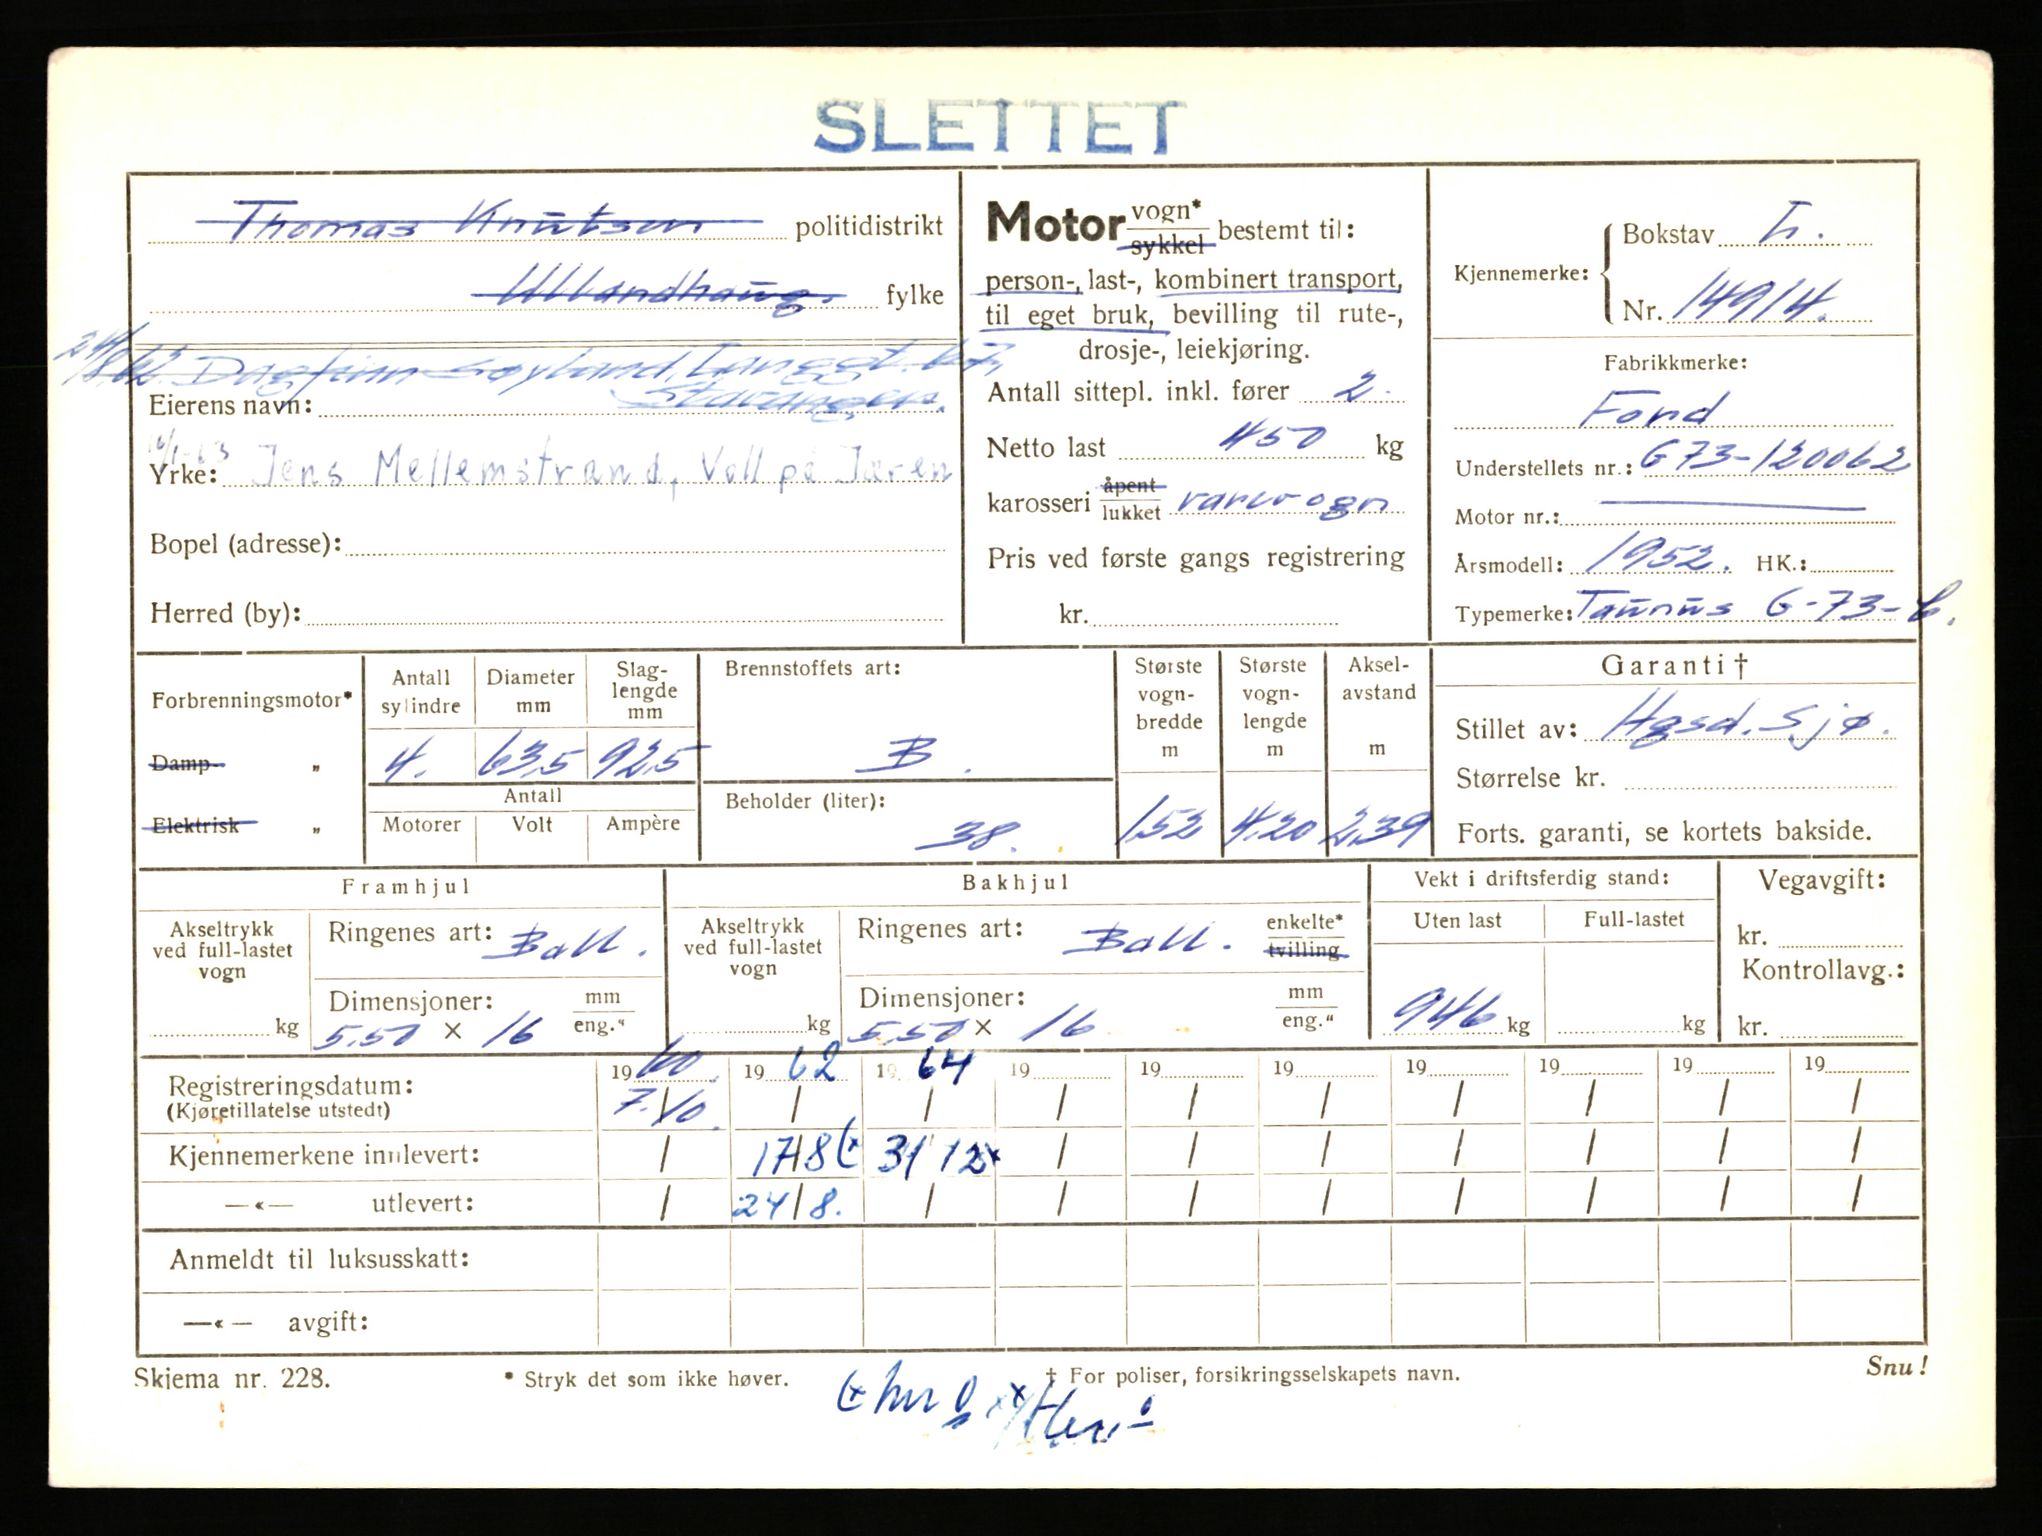 SLETTET
Thomas Knutsen politidistrikt
Ullandhaug. fylke
24/8.62. Dagfinn Søyland, Langgt. 67,
Stavanger.
Eierens navn:
10/1-63
Yrke: Jens Mellemstrand, Voll på Jæren
Bopel (adresse):
Herred (by):
Motor vogn* sykkel bestemt til:
person-, last-, kombinert transport,
til eget bruk, bevilling til rute-,
drosje-, leiekjøring.
Antall sittepl. inkl. fører 2.
Netto last 450 kg
karosseri åpent lukket varevogn
Pris ved første gangs registrering
kr.
Kjennemerke: Bokstav L.
Nr. 14914.
Fabrikkmerke:
Ford
Understellets nr.: G73-120062
Motor nr.:
Årsmodell: 1952. HK.:
Typemerke: Taunus G-73-C.
Forbrenningsmotor*
Damp- „
Elektrisk „
Antall sylindre Diameter mm Slag-lengde mm
4. 63,5 92,5
Antall
Motorer Volt Ampère
Brennstoffets art:
B.
Beholder (liter):
38.
Største vogn-bredde m Største vogn-lengde m Aksel-avstand m
1,52 4,20 2,39
Garanti †
Stillet av: Hgsd. Sjø.
Størrelse kr.
Forts. garanti, se kortets bakside.
Framhjul
Akseltrykk ved full-lastet vogn
kg
Ringenes art: Ball.
Dimensjoner: mm eng."
5.50 × 16
Bakhjul
Akseltrykk ved full-lastet vogn
kg
Ringenes art: Ball. enkelte* tvilling
Dimensjoner: mm eng."
5.50 × 16
Vekt i driftsferdig stand:
Uten last Full-lastet
946 kg kg
Vegavgift:
kr.
Kontrollavg.:
kr.
Registreringsdatum: 1960. 1962 1964 19 19 19 19 19 19 19
(Kjøretillatelse utstedt) 7/10. / / / / / / / / /
Kjennemerkene innlevert: / 17/8 (x 31/12x / / / / / / /
—«— utlevert: / 24/8. / / / / / / / /
Anmeldt til luksusskatt:
—«— avgift:
Skjema nr. 228.
* Stryk det som ikke høver.
† For poliser, forsikringsselskapets navn.
Snu!